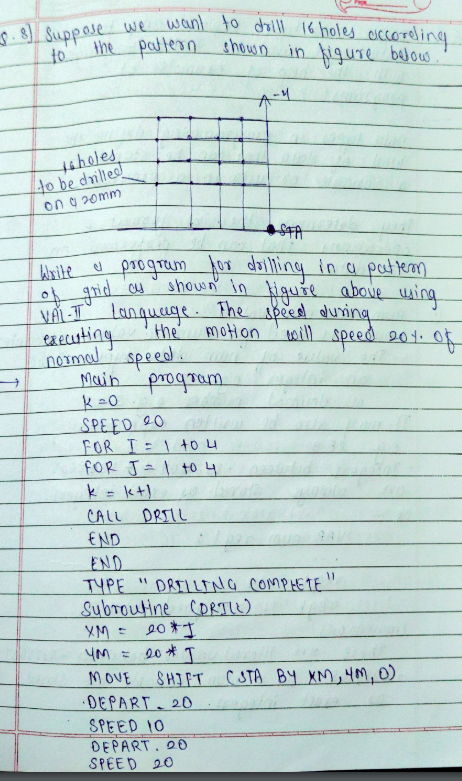 Q.8) Suppose we want to drill 16 holes according
to the pattern shown in figure below.
-y
16 holes
to be drilled
on a 20mm
STA
Write a program for drilling in a pattern
of grid as shown in figure above using
VAL-II language. The speed during
executing the motion will speed 20% of
normal speed.
→ Main program
k=0
SPEED 20
FOR I = 1 to 4
FOR J = 1 to 4
k = k+1
CALL DRILL
END
END
TYPE "DRILLING COMPLETE"
Subroutine (DRILL)
XM = 20*I
YM = 20*J
MOVE SHIFT (STA BY XM, YM, 0)
DEPART - 20
SPEED 10
DEPART. 20
SPEED 20